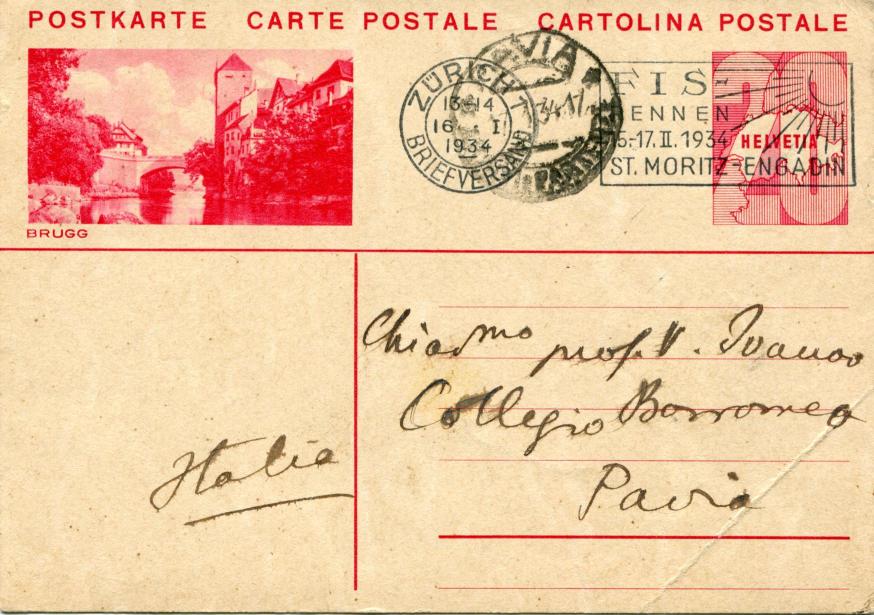 POSTKARTE CARTE POSTALE CARTOLINA POSTALE
BRUGG
ZÜRICH 1
13-14
16 I
1934
BRIEFVERSAND
VIA
34.17
FIS-
RENNEN
15-17.II.1934
ST. MORITZ-ENGADIN
20
HELVETIA
Chiarmo prof. V. Ivanov
Collegio Borromeo
Pavia
Italia